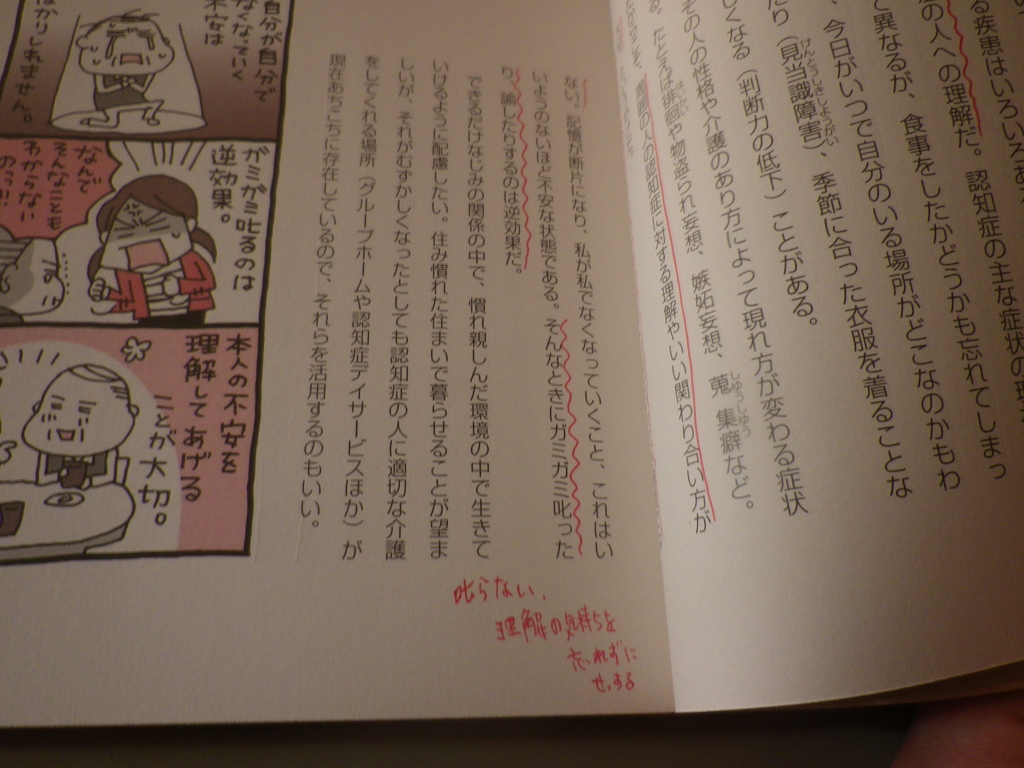 る疾患はいろいろあ
の人への理解だ。認知症の主な症状の現
て異なるが、食事をしたかどうかも忘れてしまっ
、今日がいつで自分のいる場所がどこなのかもわ
たり（見当識障害）、季節に合った衣服を着ることな
しくなる（判断力の低下）ことがある。
その人の性格や介護のあり方によって現れ方が変わる症状
る。たとえば徘徊や物盗られ妄想、嫉妬妄想、蒐集癖など。
周囲の人の認知症に対する理解やいい関わり合い方が
ない。記憶が断片になり、私が私でなくなっていくこと、これはい
いようのないほど不安な状態である。そんなときにガミガミ叱った
り、諭したりするのは逆効果だ。
できるだけなじみの関係の中で、慣れ親しんだ環境の中で生きて
いけるように配慮したい。住み慣れた住まいで暮らせることが望ま
しいが、それがむずかしくなったとしても認知症の人に適切な介護
をしてくれる場所（グループホームや認知症デイサービスほか）が
現在あちこちに存在しているので、それらを活用するのもいい。
叱らない、
理解の気持ちを
忘れずに
せっする
自分が自分で
なくなっていく
不安は
はかりしれません。
ガミガミ叱るのは
逆効果。
なんで
そんなことも
わからない
のっ!!
本人の不安を
理解してあげる
ことが大切。